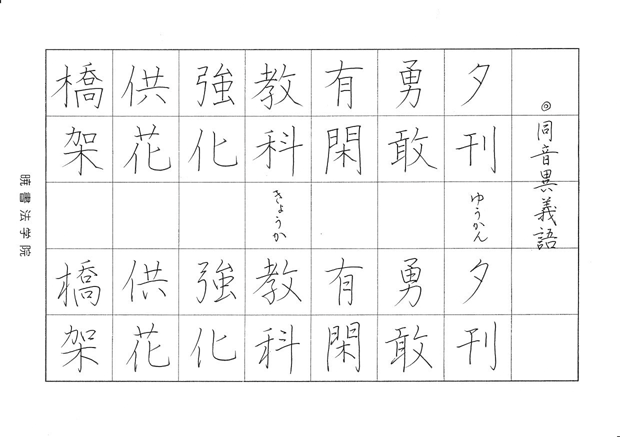 ◎同音異義語
夕刊 ゆうかん 夕刊
勇敢 勇敢
有閑 有閑
教科 きょうか 教科
強化 強化
供花 供花
橋架 橋架
暁書法学院